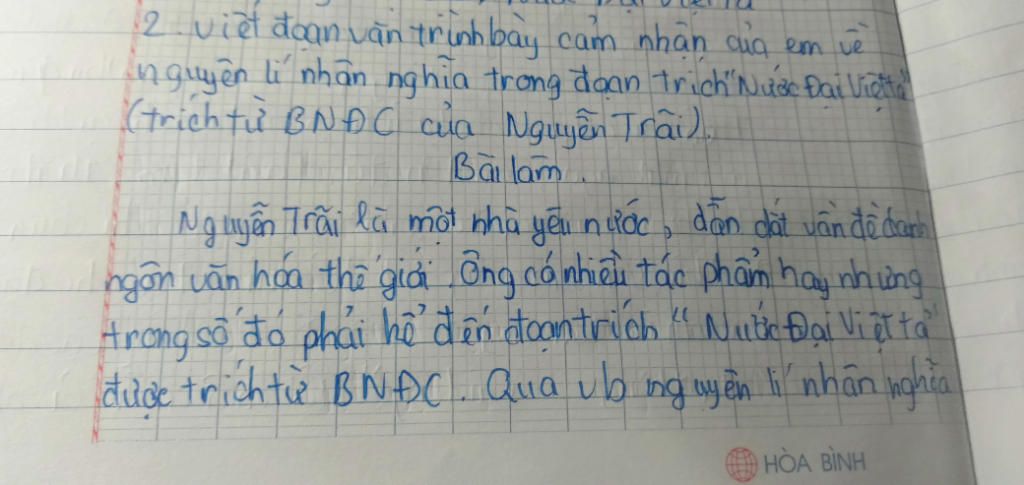 2. Viết đoạn văn trình bày cảm nhận của em về
nguyên lí nhân nghĩa trong đoạn trích "Nước Đại Việt ta"
(trích từ BNĐC của Nguyễn Trãi).
Bài làm.
Nguyễn Trãi là một nhà yêu nước, dẫn dắt vấn đề danh
ngôn văn hóa thế giới. Ông có nhiều tác phẩm hay nhưng
trong số đó phải kể đến đoạn trích "Nước Đại Việt ta"
được trích từ BNĐC. Qua vb nguyên lí nhân nghĩa
HÒA BÌNH